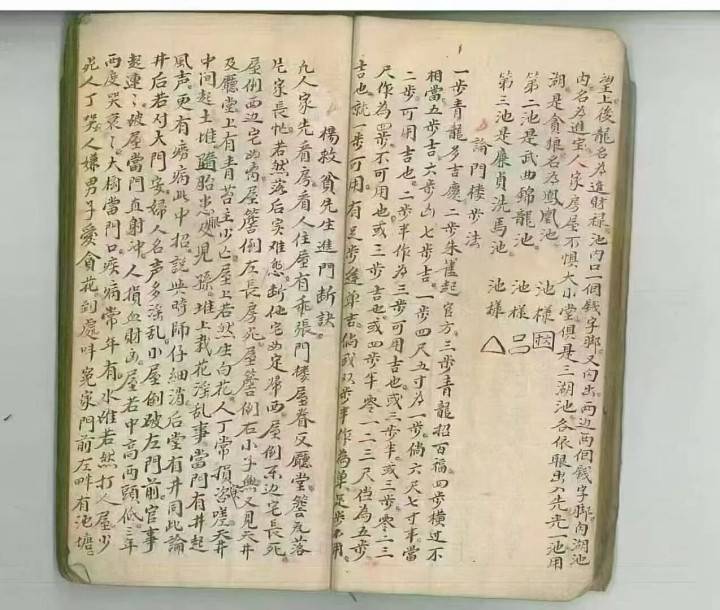 望上後龍名為進財祿池内口一個錢字脚又内出両边両個錢字脚内湖池
内名為進宝人家房屋不惧大小堂俱是三湖池各依眼出一池用
湖是貪狼名為鳳凰池 池樣
第二池是武曲錦龍池 池樣
第三池是廉貞洗馬池 池樣
論門楼步法
一步青龍多吉慶二步朱雀起官方三步青龍招百福四步橫过不
相當五步吉六步凶七步吉一步四尺五寸為一步倘六尺七寸半當
二步可用吉也二步半作為三步可用吉也或三步半或三步零二三
尺作為四步不可用也或三步吉也或四步半零一二三尺作為五步
吉也就一步可用有足步逢单吉倘或以步半作為单足步不用
楊救貧先生進門断訣
凡人家先看房看人住屋有乖張門楼屋脊及廳堂簷瓦落
定家長忙若然落后实难熬断他宅必定歸西屋倒東边宅長死
屋倒西边宅内喪屋簷倒左長房死屋簷倒右小子無又見天井
及廳堂上有青苔主少亡屋上若然生白花人丁常損咨嗟天井
中间起土堆隨胎患眼見孫堆上栽花淫乱事當門有井起
風声更有癆病此中招説與時師仔細消后堂有井同此論
井后若对大門安婦人名声多淫乱小屋倒破左門前官事
起連〻破屋當門直射冲人損血財凶屋若中高両頭低三年
両度哭哀〻大樹當門口疾病常年有水堆若然打人屋少
死人丁哭人嫌男子愛貪花到處叶冤家門前左畔有池塘